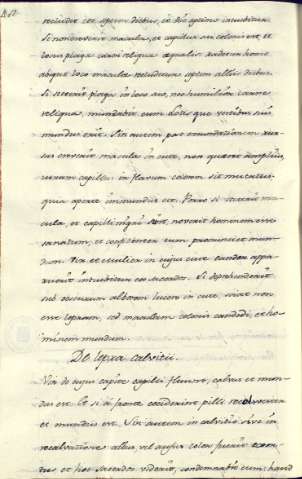 recludet eos septem diebus, in die septimo intuebitur.
Si non creverit macula, et capillus sui coloris est, et
locus plagæ carni reliquæ æqualis: radetur homo
absque loco maculæ recludetur septem aliis diebus.
Si steterit plaga in loco suo, nec humilior carne
reliqua, mundabit eum lotisque vestibus suis
mundus erit. Sin autem post emundationem rur
sus creverit macula in cute, non quæret amplius,
utrum capillus in flavum colorem sit mutatus
quia aperte immundus est. Porro si steterit ma
cula, et capilli nigri
sanatum, et confidenter eum pronunciet mun
dum. Vir et mulier in cujus cute candor appa
ruerit intuebitur eos sacerdos. Si deprehenderit
sub obscurum alborem lucere in cute, sciat non
esse lepram, sed maculam coloris candidi, et ho
minem mundum.
De lepra calvitii.
Vir de cujus capite capilli fluunt, calvus et mun
dus est. Et si a fronte ceciderint pili recalvaster
et mundus est. Sin autem in calvitio sive in
recalvatione albus, vel rufus color fuerit exor
tus et hoc sacerdos viderit, condemnabit eum haud